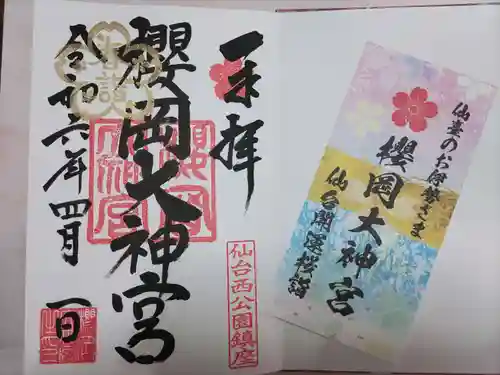 奉拝
櫻岡大神宮
仙台西公園鎮座
令和六年四月一日
仙臺のお伊勢さま
櫻岡大神宮
仙台開運桜詣